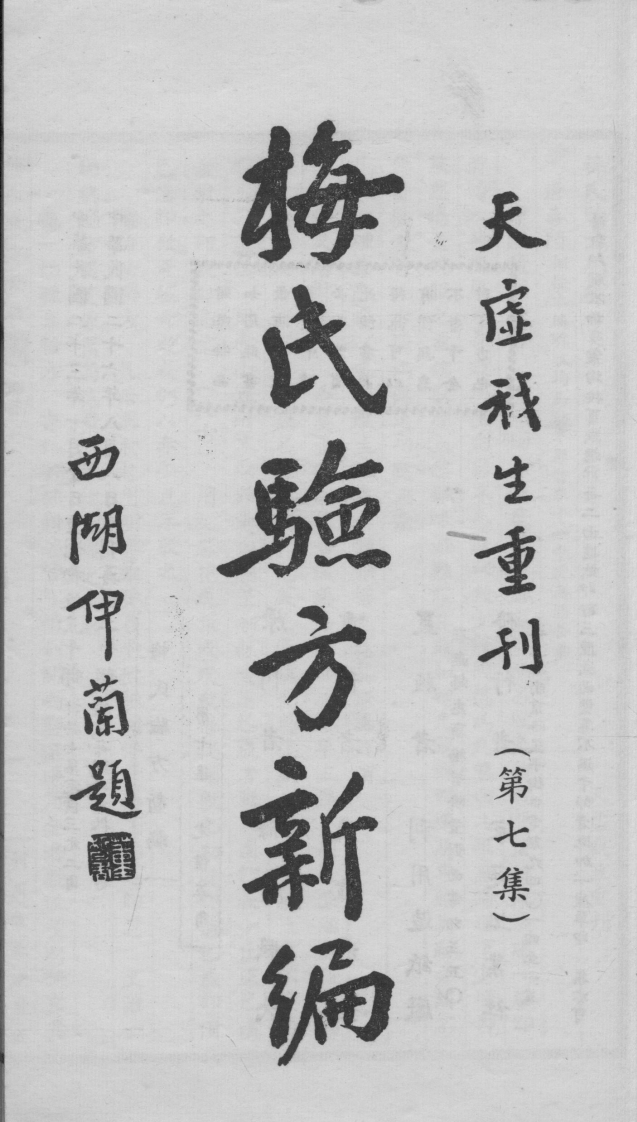 天虛我生重刊（第七集）
梅氏驗方新編
西湖伊蘭題